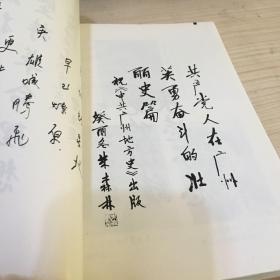 共产党人在广州
英勇奋斗的壮
丽史篇
祝《中共广州地方史》出版
癸酉冬 朱森林
早已燎原
英雄城腾飞
更上